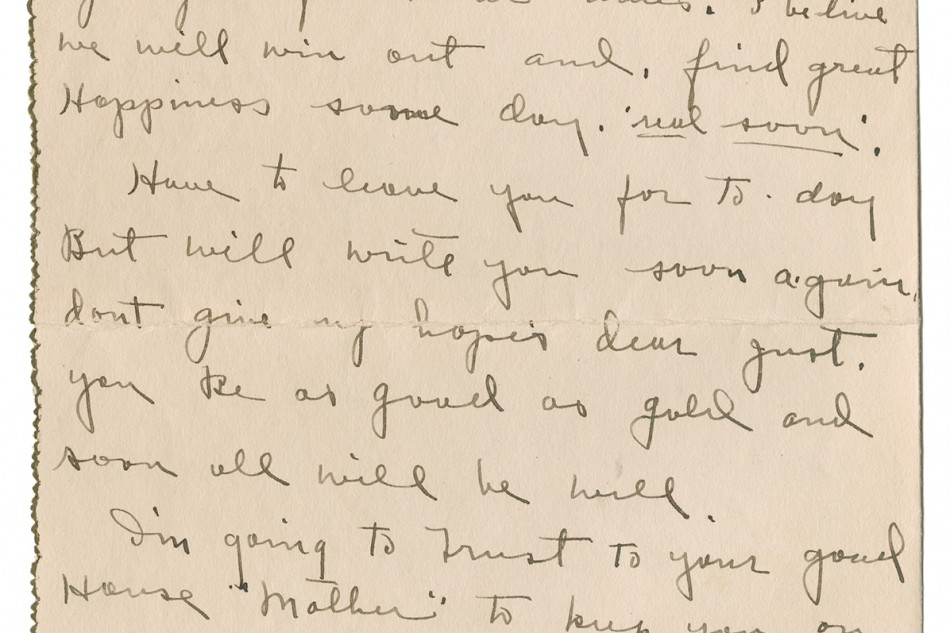 I belive
we will win out and, find great
Happiness some day. "real soon".
Have to leave you for to-day
But will write you soon again,
dont give up hopes dear just.
you Be as good as gold and
soon all will be well.
I'm going to Trust to your good
House "Mother" to keep you on